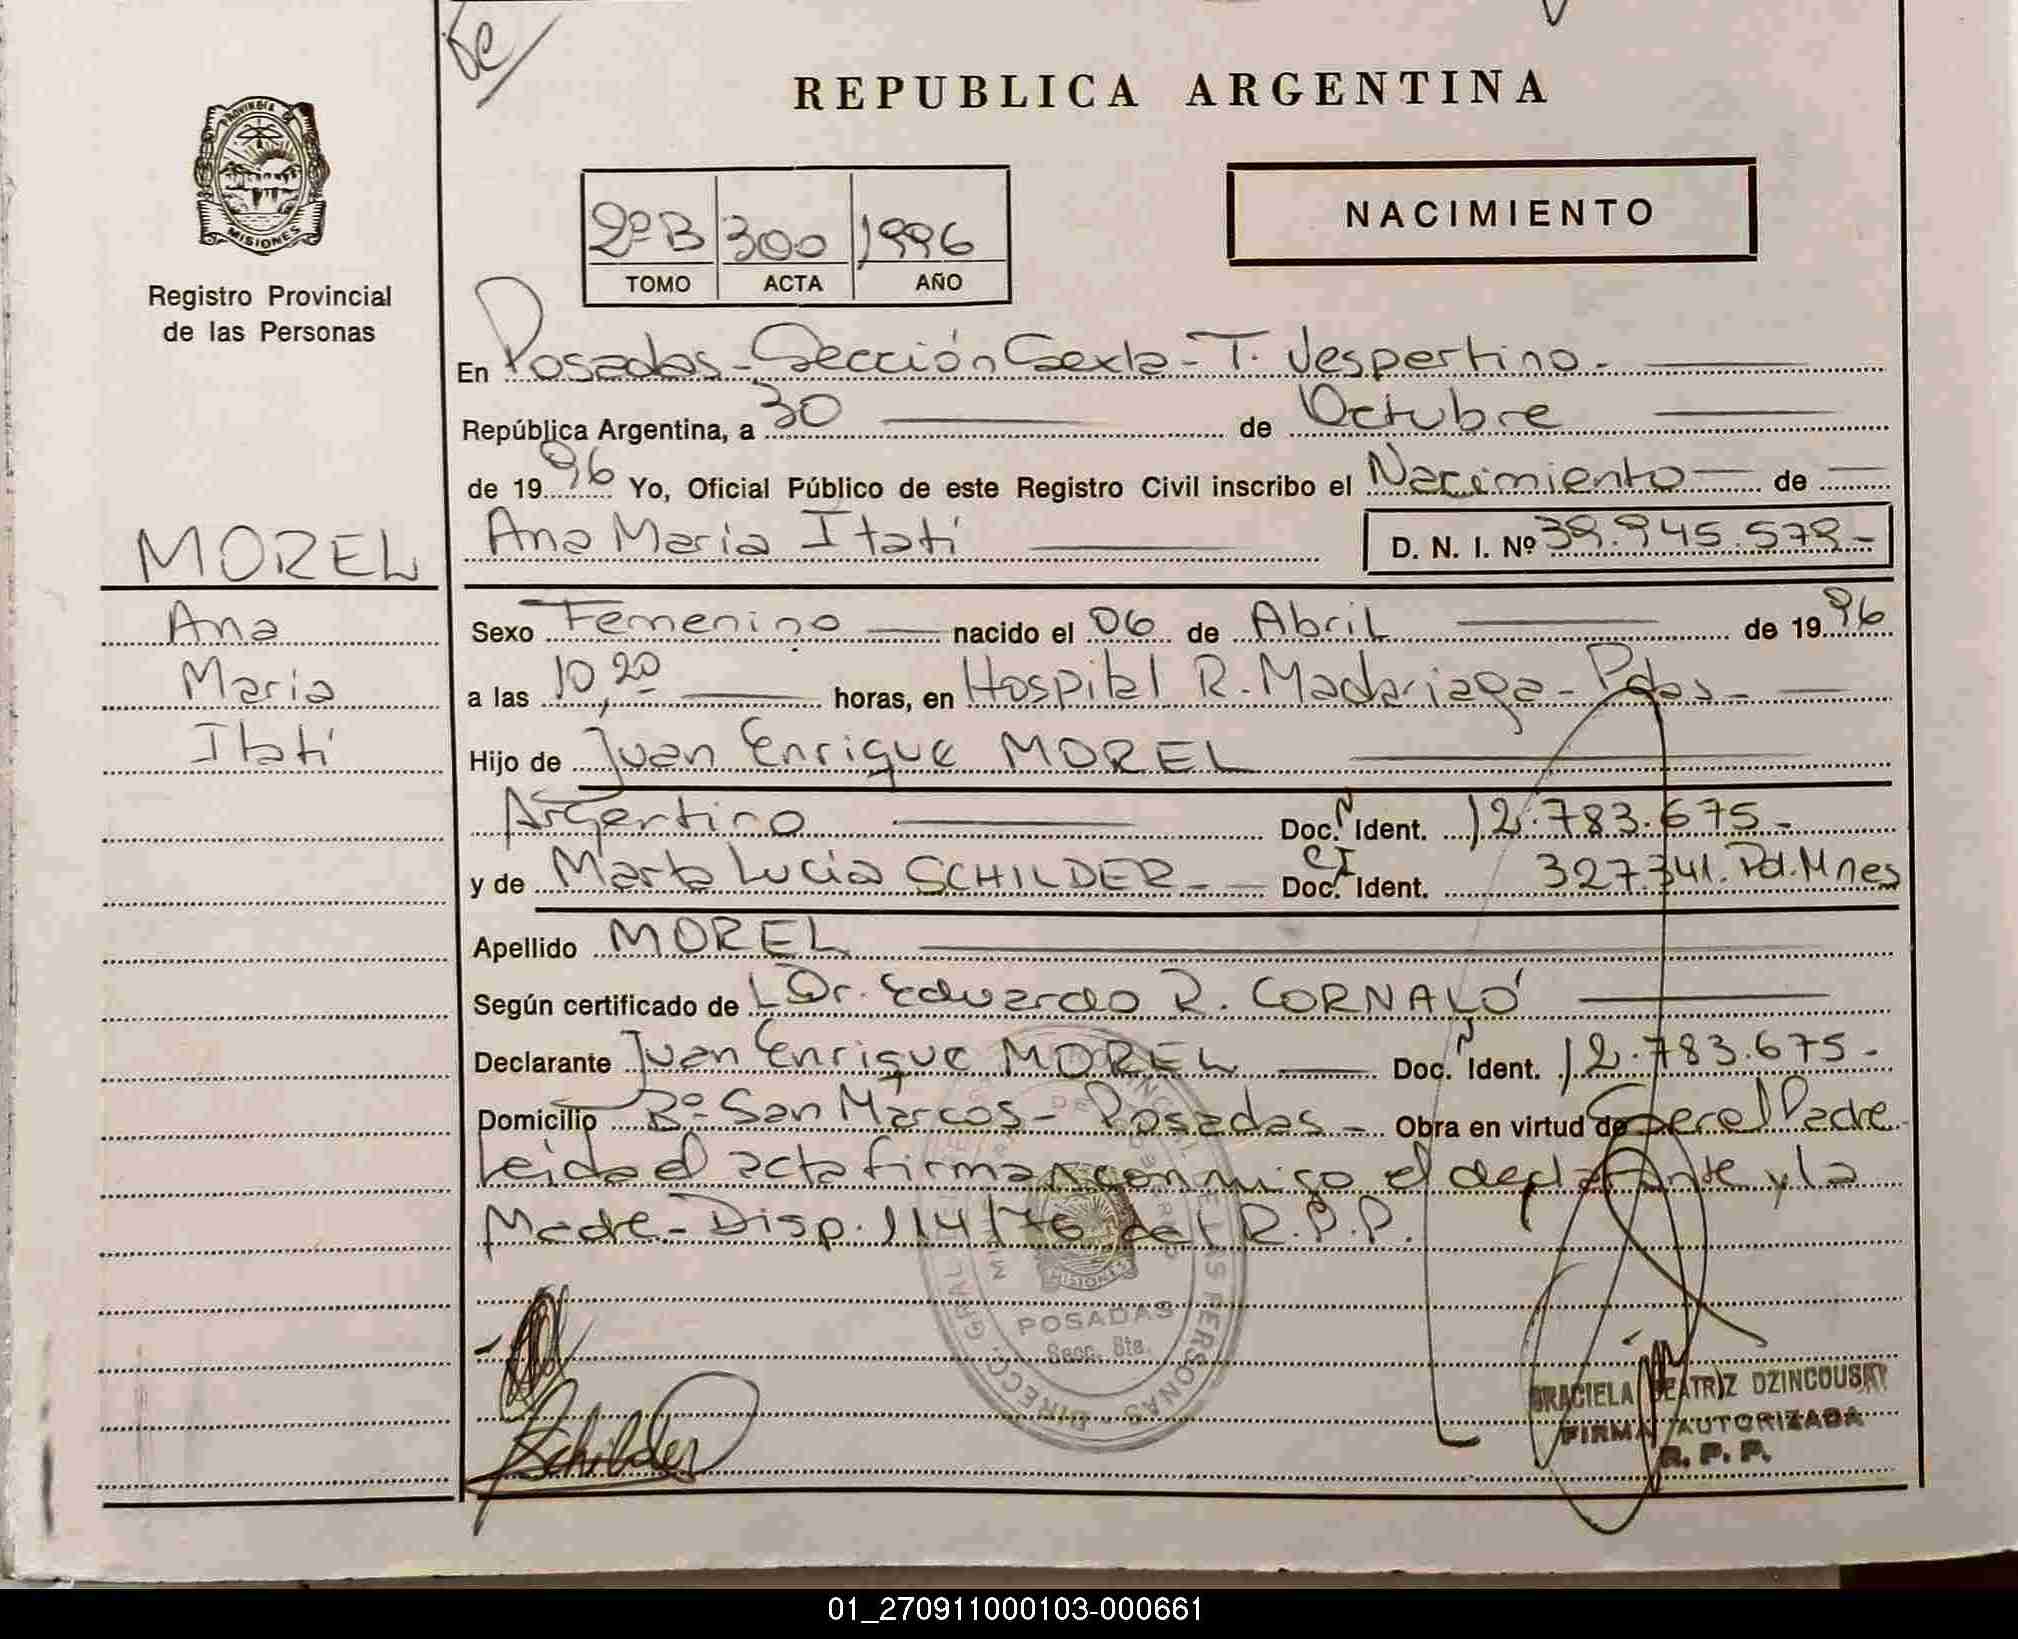 REPUBLICA ARGENTINA
PROVINCIA DE
MISIONES
Registro Provincial
de las Personas
2º B 300 1996
TOMO ACTA AÑO
NACIMIENTO
En Posadas - Sección Sexta - T. Vespertino.-
República Argentina, a 30 de Octubre
de 1996 Yo, Oficial Público de este Registro Civil inscribo el Nacimiento de
Ana Maria Itatí D. N. I. Nº 39.945.579.-
MOREL
Ana
Maria
Itatí
Sexo Femenino nacido el 06 de Abril de 1996
a las 10,20 horas, en Hospital R. Madariaga - Pdas -
Hijo de Juan Enrique MOREL
Argentino Doc. N Ident. 12.783.675 -
y de Marta Lucia SCHILDER - Doc. CI Ident. 327.341. Pol. Mnes
Apellido MOREL
Según certificado de Dr. Eduardo R. CORNALÓ
Declarante Juan Enrique MOREL Doc. N Ident. 12.783.675 -
Domicilio Bº San Marcos - Posadas - Obra en virtud de Ser el Padre
Leida el acta firman conmigo el declarante y la
Madre - Disp. 114/76 del R.P.P.
POSADAS
Secc. 6ta.
Schilder
GRACIELA BEATRIZ DZINCOUSKY
FIRMA AUTORIZADA
R. P. P.
01_270911000103-000661